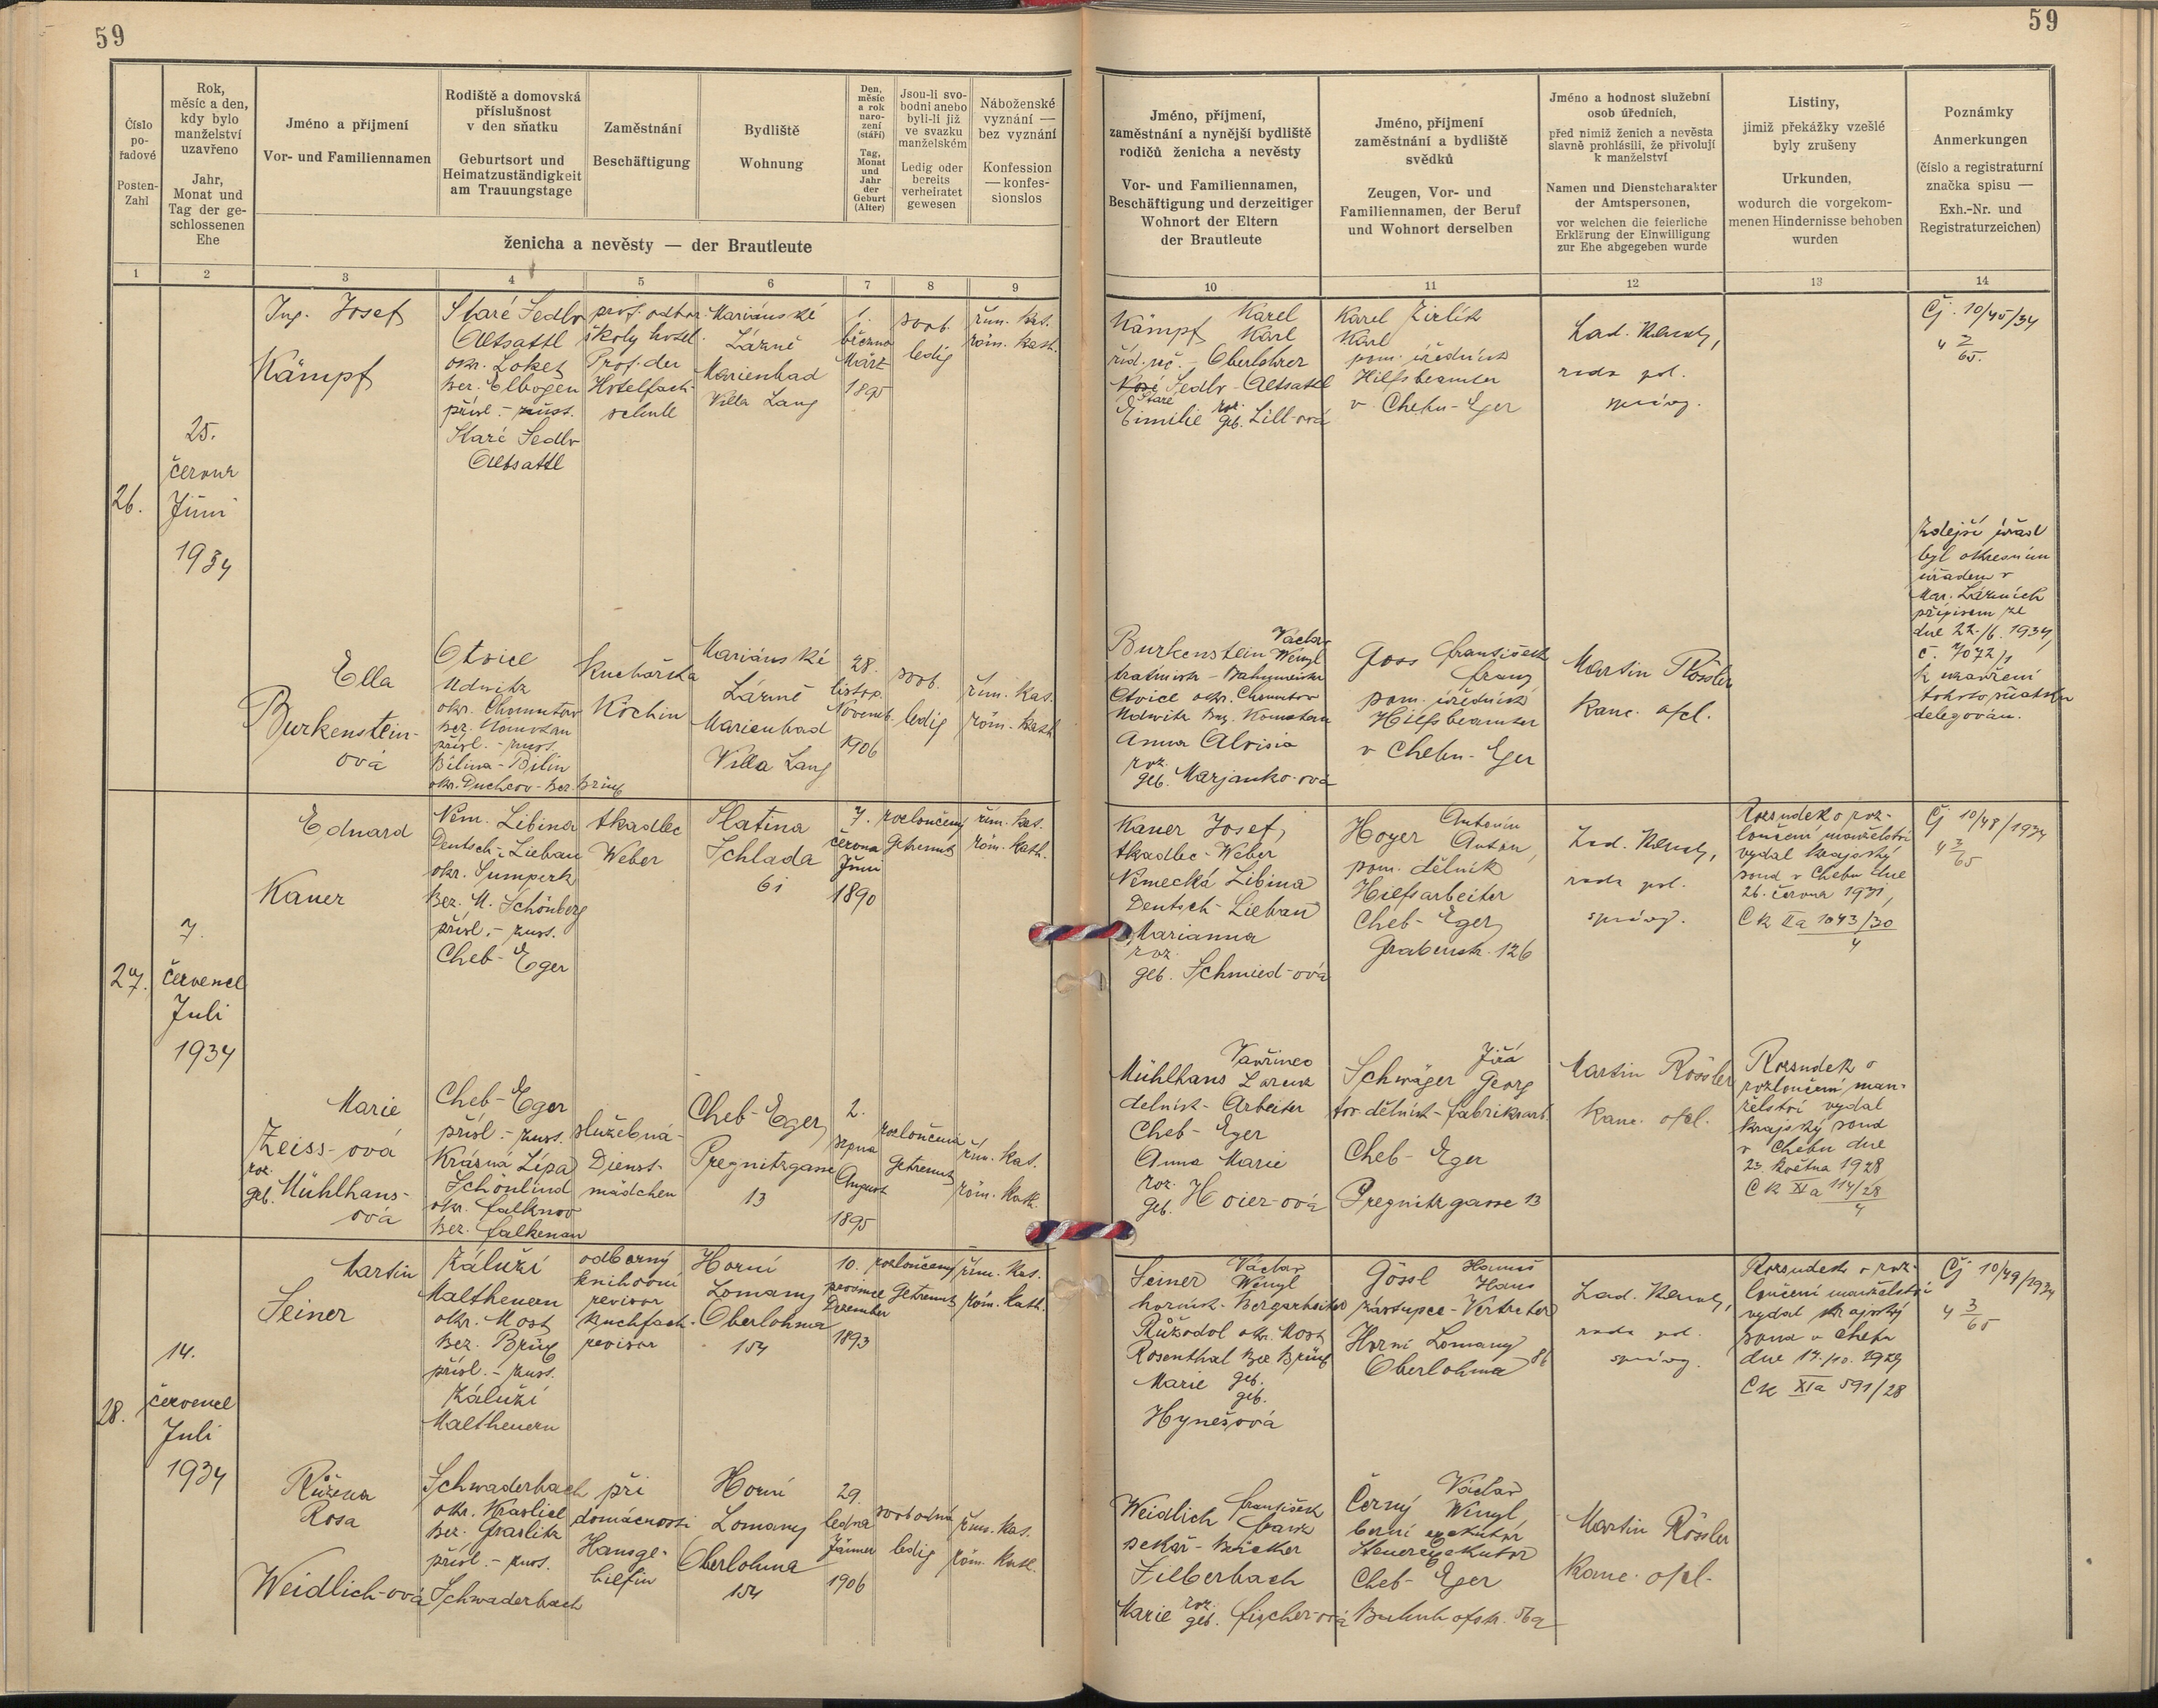 59
59
Číslo
po-
řadové
Posten-
Zahl
Rok,
měsíc a den,
kdy bylo
manželství
uzavřeno
Jahr,
Monat und
Tag der ge-
schlossenen
Ehe
Jméno a příjmení
Vor- und Familiennamen
Rodiště a domovská
příslušnost
v den sňatku
Geburtsort und
Heimatzuständigkeit
am Trauungstage
Zaměstnání
Beschäftigung
Bydliště
Wohnung
Den,
měsíc
a rok
naro-
zení
(stáří)
Tag,
Monat
und
Jahr
der
Geburt
(Alter)
Jsou-li svo-
bodni anebo
byli-li již
ve svazku
manželském
Ledig oder
bereits
verheiratet
gewesen
Náboženské
vyznání —
bez vyznání
Konfession
— konfes-
sionslos
ženicha a nevěsty — der Brautleute
Jméno, příjmení,
zaměstnání a nynější bydliště
rodičů ženicha a nevěsty
Vor- und Familiennamen,
Beschäftigung und derzeitiger
Wohnort der Eltern
der Brautleute
Jméno, příjmení
zaměstnání a bydliště
svědků
Zeugen, Vor- und
Familiennamen, der Beruf
und Wohnort derselben
Jméno a hodnost služební
osob úředních,
před nimiž ženich a nevěsta
slavně prohlásili, že přivolují
k manželství
Namen und Dienstcharakter
der Amtspersonen,
vor welchen die feierliche
Erklärung der Einwilligung
zur Ehe abgegeben wurde
Listiny,
jimiž překážky vzešlé
byly zrušeny
Urkunden,
wodurch die vorgekom-
menen Hindernisse behoben
wurden
Poznámky
Anmerkungen
(číslo a registraturní
značka spisu —
Exh.-Nr. und
Registraturzeichen)
1 2 3 4 5 6 7 8 9 10 11 12 13 14
26.
25.
června
Juni
1934
Ing. Josef
Kämpf
Staré Sedlo
Altsattl
okr. Loket
Bez. Elbogen
přísl. - zust.
Staré Sedlo
Altsattl
prof. odbor.
školy hotel.
Prof. der
Hotelfach-
schule
Mariánské
Lázně
Marienbad
Villa Lang
1.
března
März
1895
svob.
ledig
řím. kat.
röm. kath.
Karel
Kämpf Karl
říd. uč. - Oberlehrer
Staré Sedlo - Altsattl
roz.
Emilie geb. Lill-ová
Karel Zirlik
Karl
pom. úředník
Hilfsbeamter
v Chebu - Eger
rada pol.
správy.
Čj. 10/45/34
4 2/65.
Ella
Burkenstein-
ová
Otvice
Udwitz
okr. Chomutov
Bez. Komotau
přísl. - zust.
Bílina - Bilin
okr. Duchcov - Bez.
Kuchařka
Köchin
Mariánské
Lázně
Marienbad
Villa Lang
28.
listop.
Novemb.
1906
svob.
ledig
řím. kat.
röm. kath.
Václav
Burkenstein Wenzl
tratmistr - Bahnmeister
Otvice okr. Chomutov
Udwitz Bez. Komotau
Anna Aloisia
roz.
geb. Marjanko-ová
Goss František
Franz
pom. úředník
Hilfsbeamter
v Chebu - Eger
Martin Rössler
Kanc. ofcl.
Zdejší úřad
byl okresním
úřadem v
Mar. Lázních
přípisem ze
dne 22./6. 1934,
k uzavření
tohoto sňatku
delegován.
27.
7.
červenec
Juli
1934
Eduard
Kauer
Něm. Libina
Deutsch-Liebau
okr. Šumperk
Bez. M. Schönberg
přísl. - zust.
Cheb - Eger
tkadlec
Weber
Slatina
Schlada
61
7.
června
Juni
1890
rozloučený
Getrennt
řím. kat.
röm. kath.
Kauer Josef,
tkadlec - Weber
Německá Libina
Deutsch-Liebau
Marianna
roz.
geb. Schmied-ová
Antonín
Hoyer Anton,
pom. dělník
Hilfsarbeiter
Cheb - Eger
Grabenstr. 126
rada pol.
správy.
Rozsudek o roz-
loučení manželství
vydal krajský
soud v Chebu dne
26. června 1931,
Ck IIa 1043/30
4
Čj 10/48/1934
4 3/65
Marie
Zeiss-ová
roz.
geb. Mühlhans-
ová
Cheb - Eger
přísl. - zust.
Krásná Lípa
Schönlind
okr. Falknov
Bez. Falkenau
služebná -
Dienst-
mädchen
Cheb - Eger
Pregnitzgasse
13
2.
srpna
August
1895
rozloučená
Getrennt
řím. kat.
röm. kath.
Vavřinec
Mühlhans Lorenz
dělník - Arbeiter
Cheb - Eger
Anna Marie
roz.
geb. Hoier-ová
Jiří
Schwäger Georg
tov. dělník - Fabriksarb.
Cheb - Eger
Pregnitzgasse 13
Martin Rössler
Kanc. ofcl.
Rozsudek o
rozloučení man-
želství vydal
krajský soud
v Chebu dne
23. května 1928
Ck XIa 114/28
4
28.
14.
červenec
Juli
1934
Martin
Seiner
Záluží
Maltheuern
okr. Most
Bez. Brüx
přísl. - zust.
Záluží
Maltheuern
odborný
knihovní
revisor
Buchfach-
revisor
Horní
Lomany
Oberlohma
154
10.
prosince
Dezember
1893
rozloučený
Getrennt
řím. kat.
röm. kath.
Václav
Seiner Wenzl
horník - Bergarbeiter
Růžodol okr. Most
Rosenthal Bez. Brüx
Marie geb.
geb.
Hynešová
Hanuš
Gössl Hans
zástupce - Vertreter
Horní Lomany
Oberlohma 86
rada pol.
správy.
Rozsudek o roz-
loučení manželství
vydal krajský
soud v Chebu
dne 17./10. 1929
Ck XIa 591/28
Čj 10/49/1934
4 3/65
Růžena
Rosa
Weidlich-ová
Schwaderbach
okr. Kraslice
Bez. Graslitz
přísl. - zust.
Schwaderbach
při
domácnosti
Hausge-
hilfin
Horní
Lomany
Oberlohma
154
29.
ledna
Jänner
1906
svobodná
ledig
řím. kat.
röm. kath.
Weidlich František
Franz
pekař - Bäcker
Silberbach
roz.
Marie geb. Fischer-ová
Václav
Černý Wenzl
berní exekutor
Steuerexekutor
Cheb - Eger
Bahnhofstr. 56a
Martin Rössler
Kanc. ofcl.